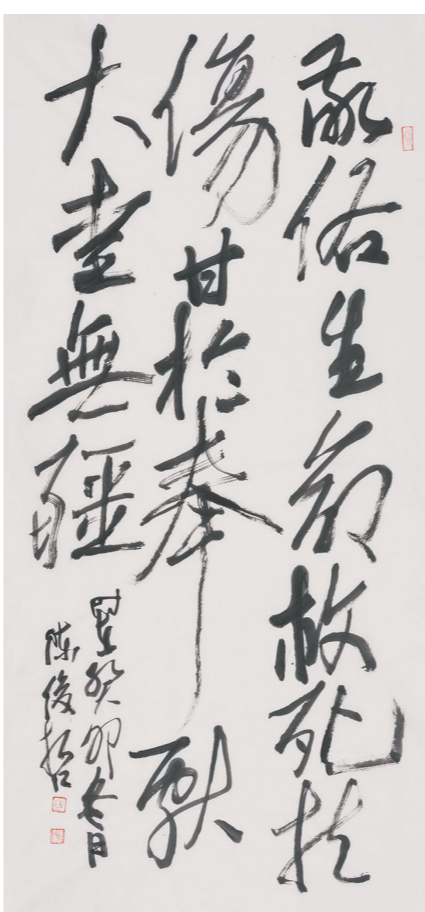 敬佑生命救死扶
傷甘於奉獻
大愛無疆
癸卯月
陳俊哲